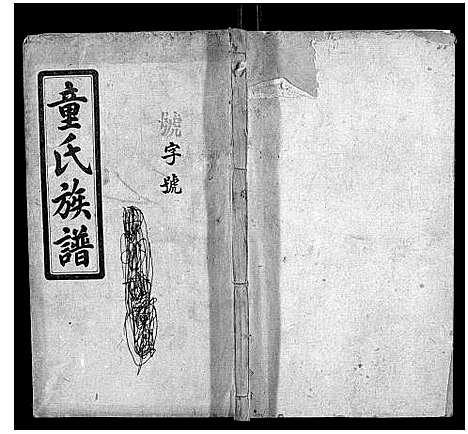 童氏族譜
號字號